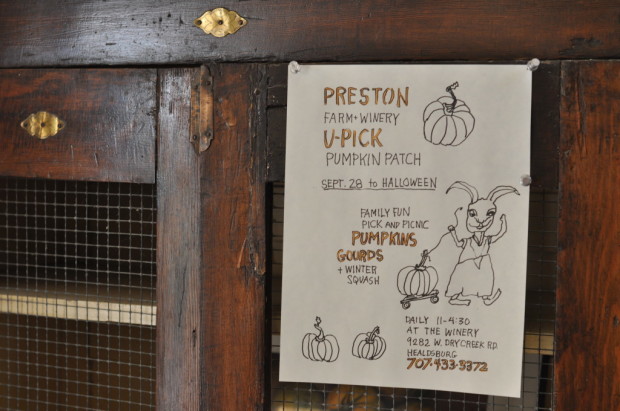 PRESTON
FARM + WINERY
U-PICK
PUMPKIN PATCH
SEPT. 28 to HALLOWEEN
FAMILY FUN
PICK AND PICNIC
PUMPKINS
GOURDS
+ WINTER
SQUASH
DAILY 11-4:30
AT THE WINERY
9282 W. DRY CREEK RD.
HEALDSBURG
707.433-3372